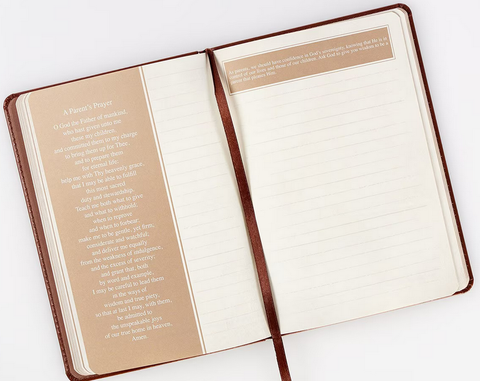 A Parent's Prayer
O God the Father of mankind,
who hast given unto me
these my children,
and committed them to my charge
to bring them up for Thee,
and to prepare them
for eternal life:
help me with Thy heavenly grace,
that I may be able to fulfill
this most sacred
duty and stewardship.
Teach me both what to give
and what to withhold;
when to reprove
and when to forbear;
make me to be gentle, yet firm;
considerate and watchful;
and deliver me equally
from the weakness of indulgence,
and the excess of severity;
and grant that, both
by word and example,
I may be careful to lead them
in the ways of
wisdom and true piety,
so that at last I may, with them,
be admitted to
the unspeakable joys
of our true home in heaven.
Amen.
As parents, we should have confidence in God's sovereignty, knowing that He is in
control of our lives and those of our children. Ask God to give you wisdom to be a
parent that pleases Him.